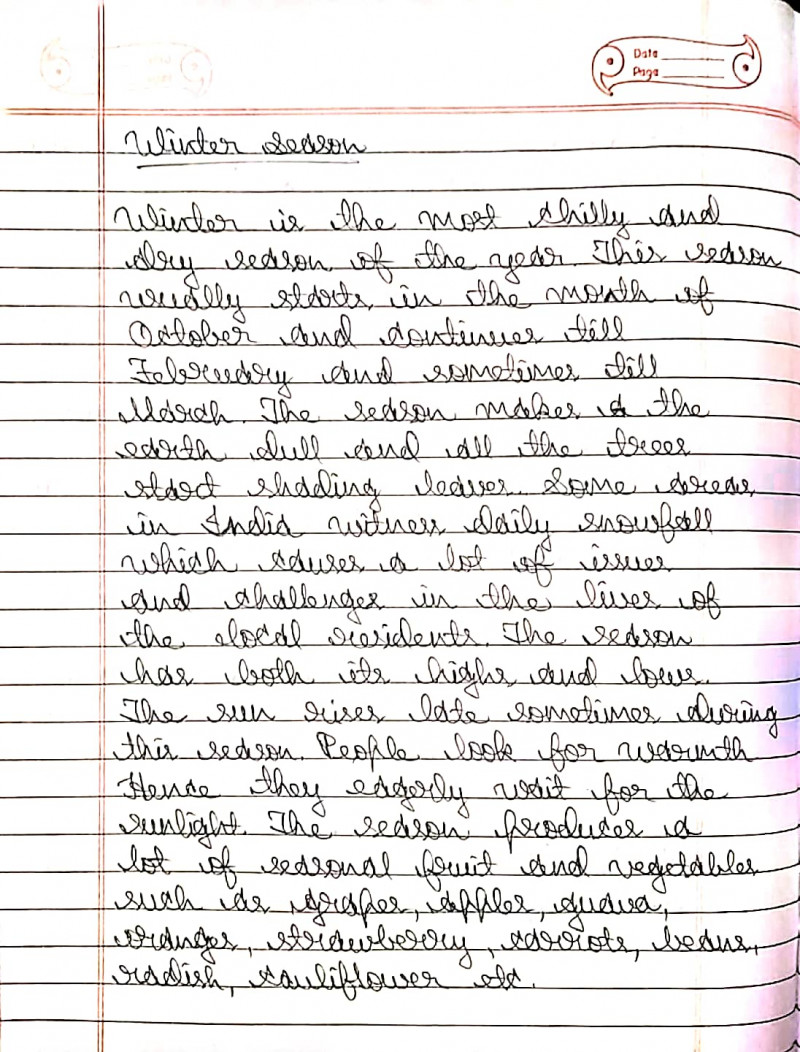 Date
Page
Winter season
Winter is the most chilly and
dry season of the year. This season
usually starts in the month of
October and continues till
February and sometimes till
March. The season makes a the
earth dull and all the trees
start shading leaves. Some areas
in India witness daily snowfall
which causes a lot of issues
and challenges in the lives of
the local residents. The season
has both its highs and lows.
The sun rises late sometimes during
this season. People look for warmth
Hence they eagerly wait for the
sunlight. The season produces a
lot of seasonal fruit and vegetables
such as grapes, apples, guava,
oranges, strawberry, carrots, beans,
radish, cauliflower etc.